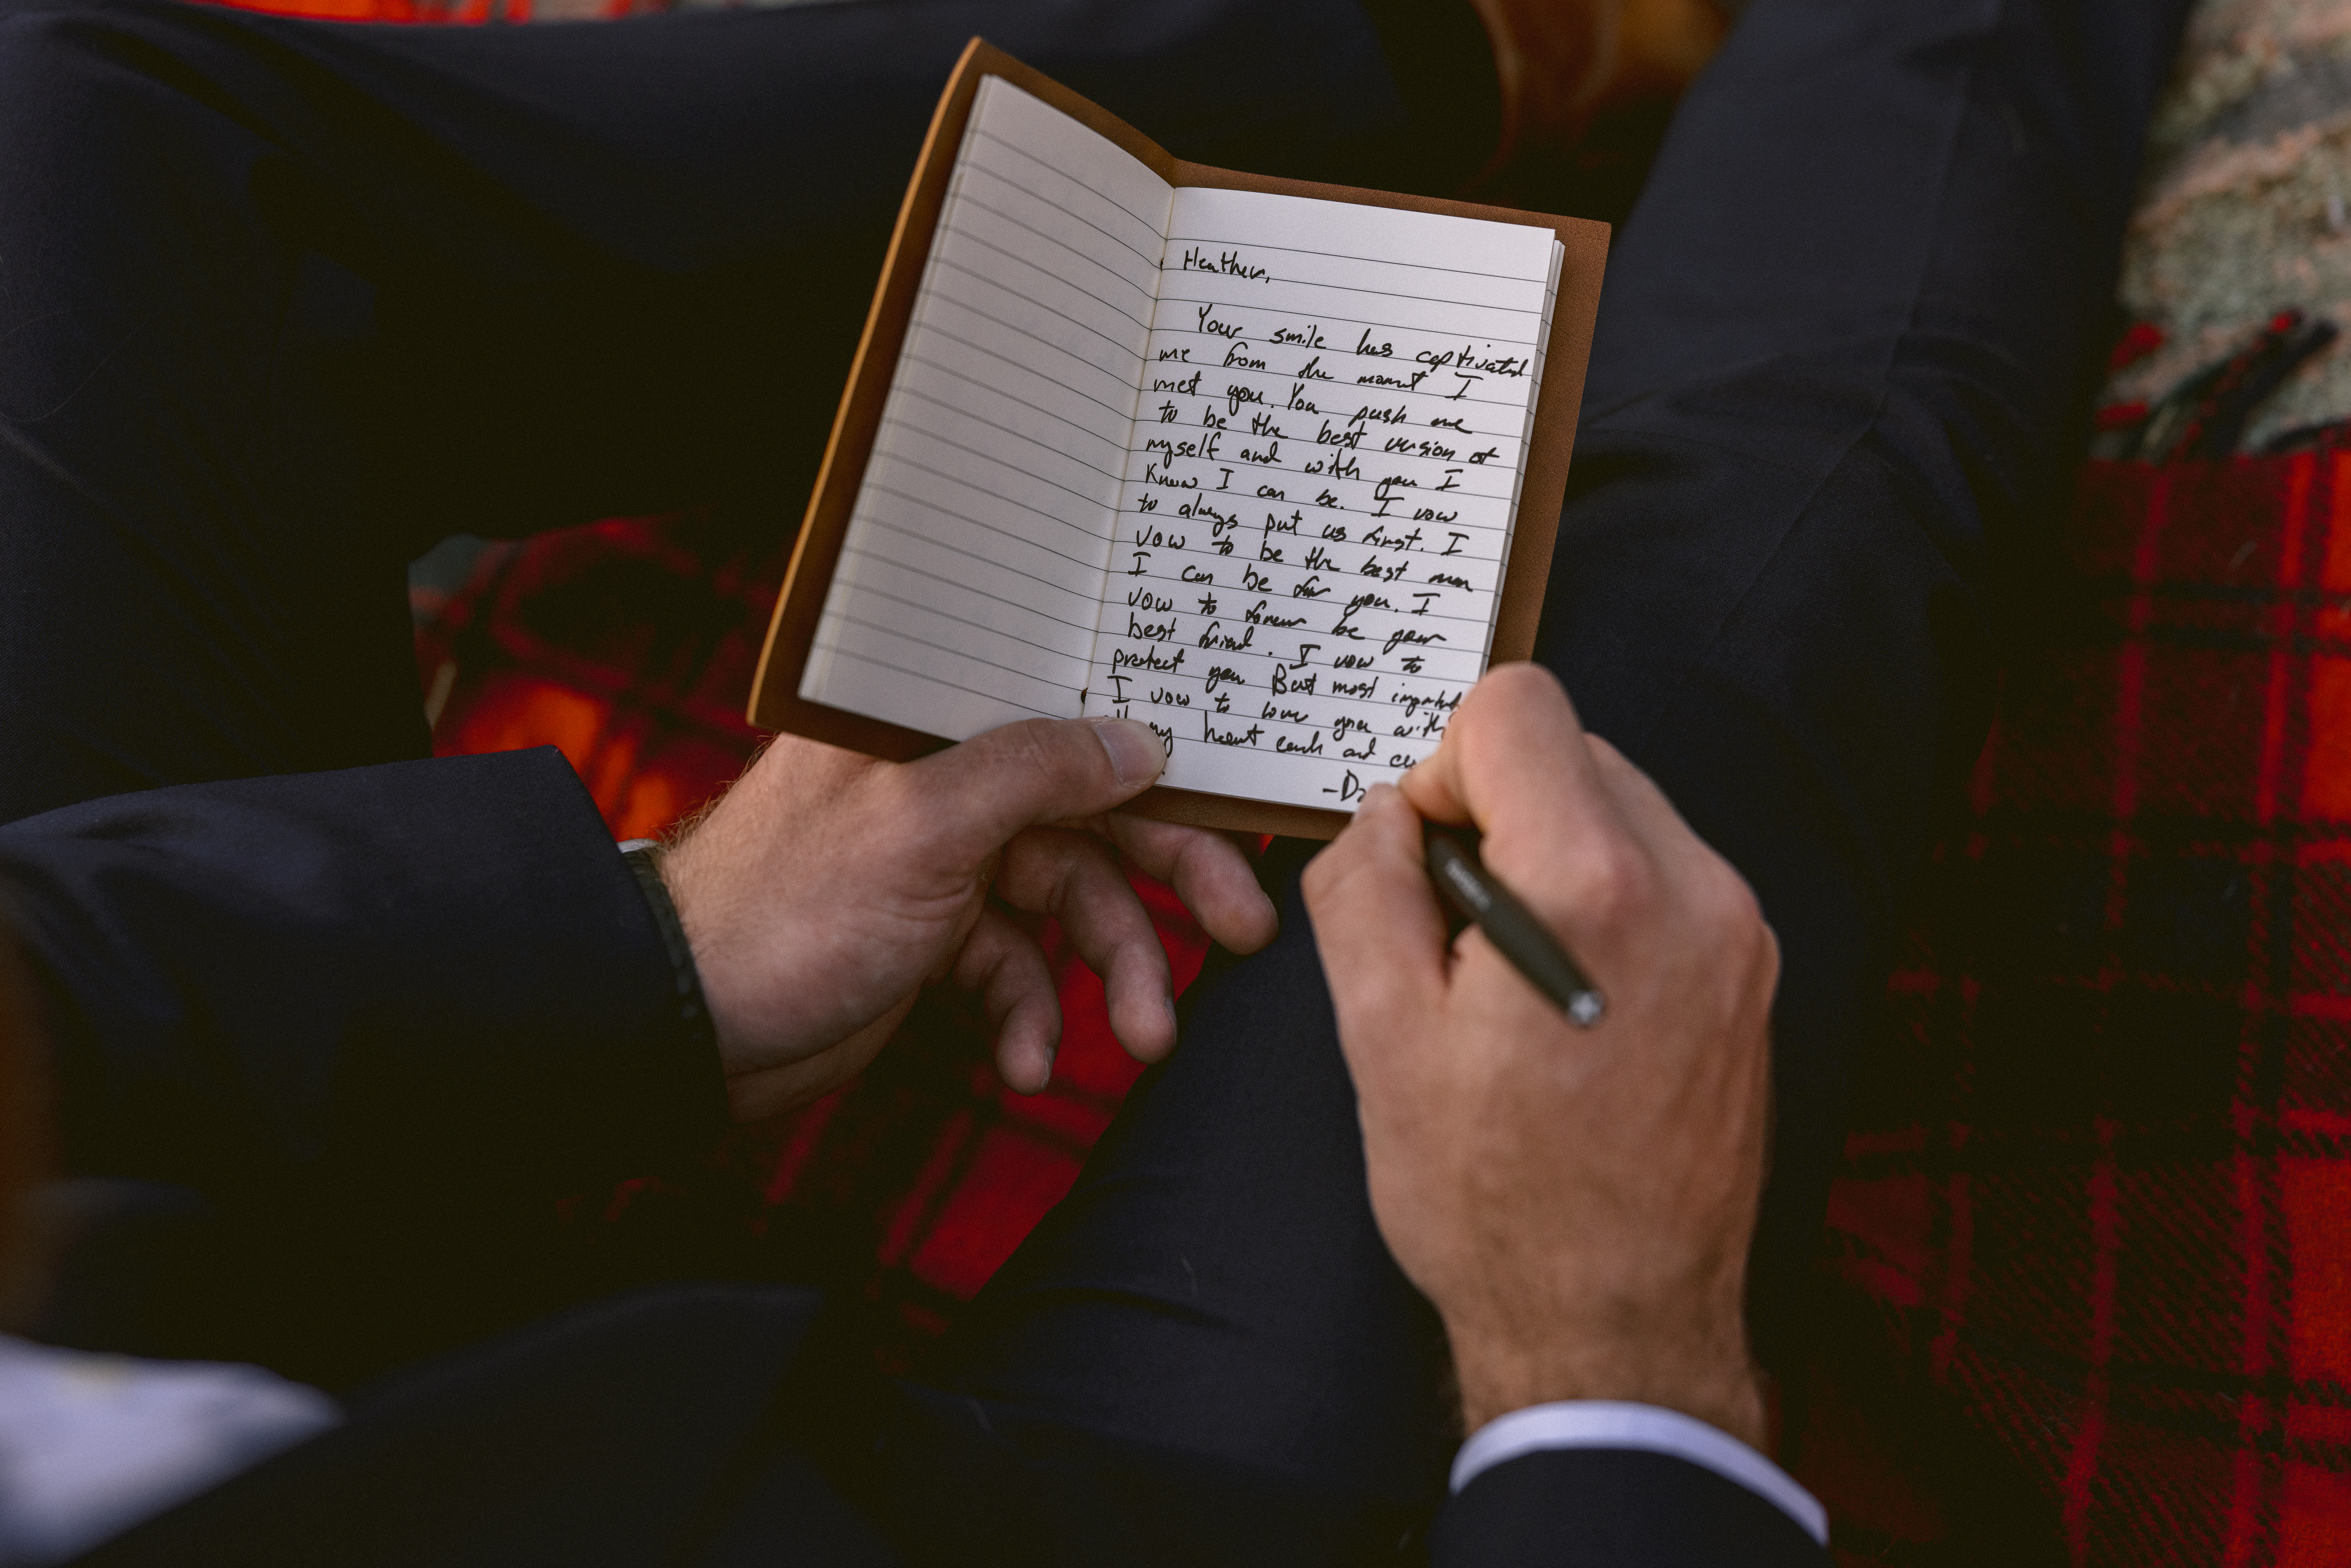 Heather,
Your smile has captivated
me from the moment I
met you. You push me
to be the best version of
myself and with you I
Know I can be. I vow
to always put us first. I
vow to be the best man
I can be for you. I
vow to forever be your
best friend. I vow to
protect you. But most
I vow to love you with
my heart each and
-D